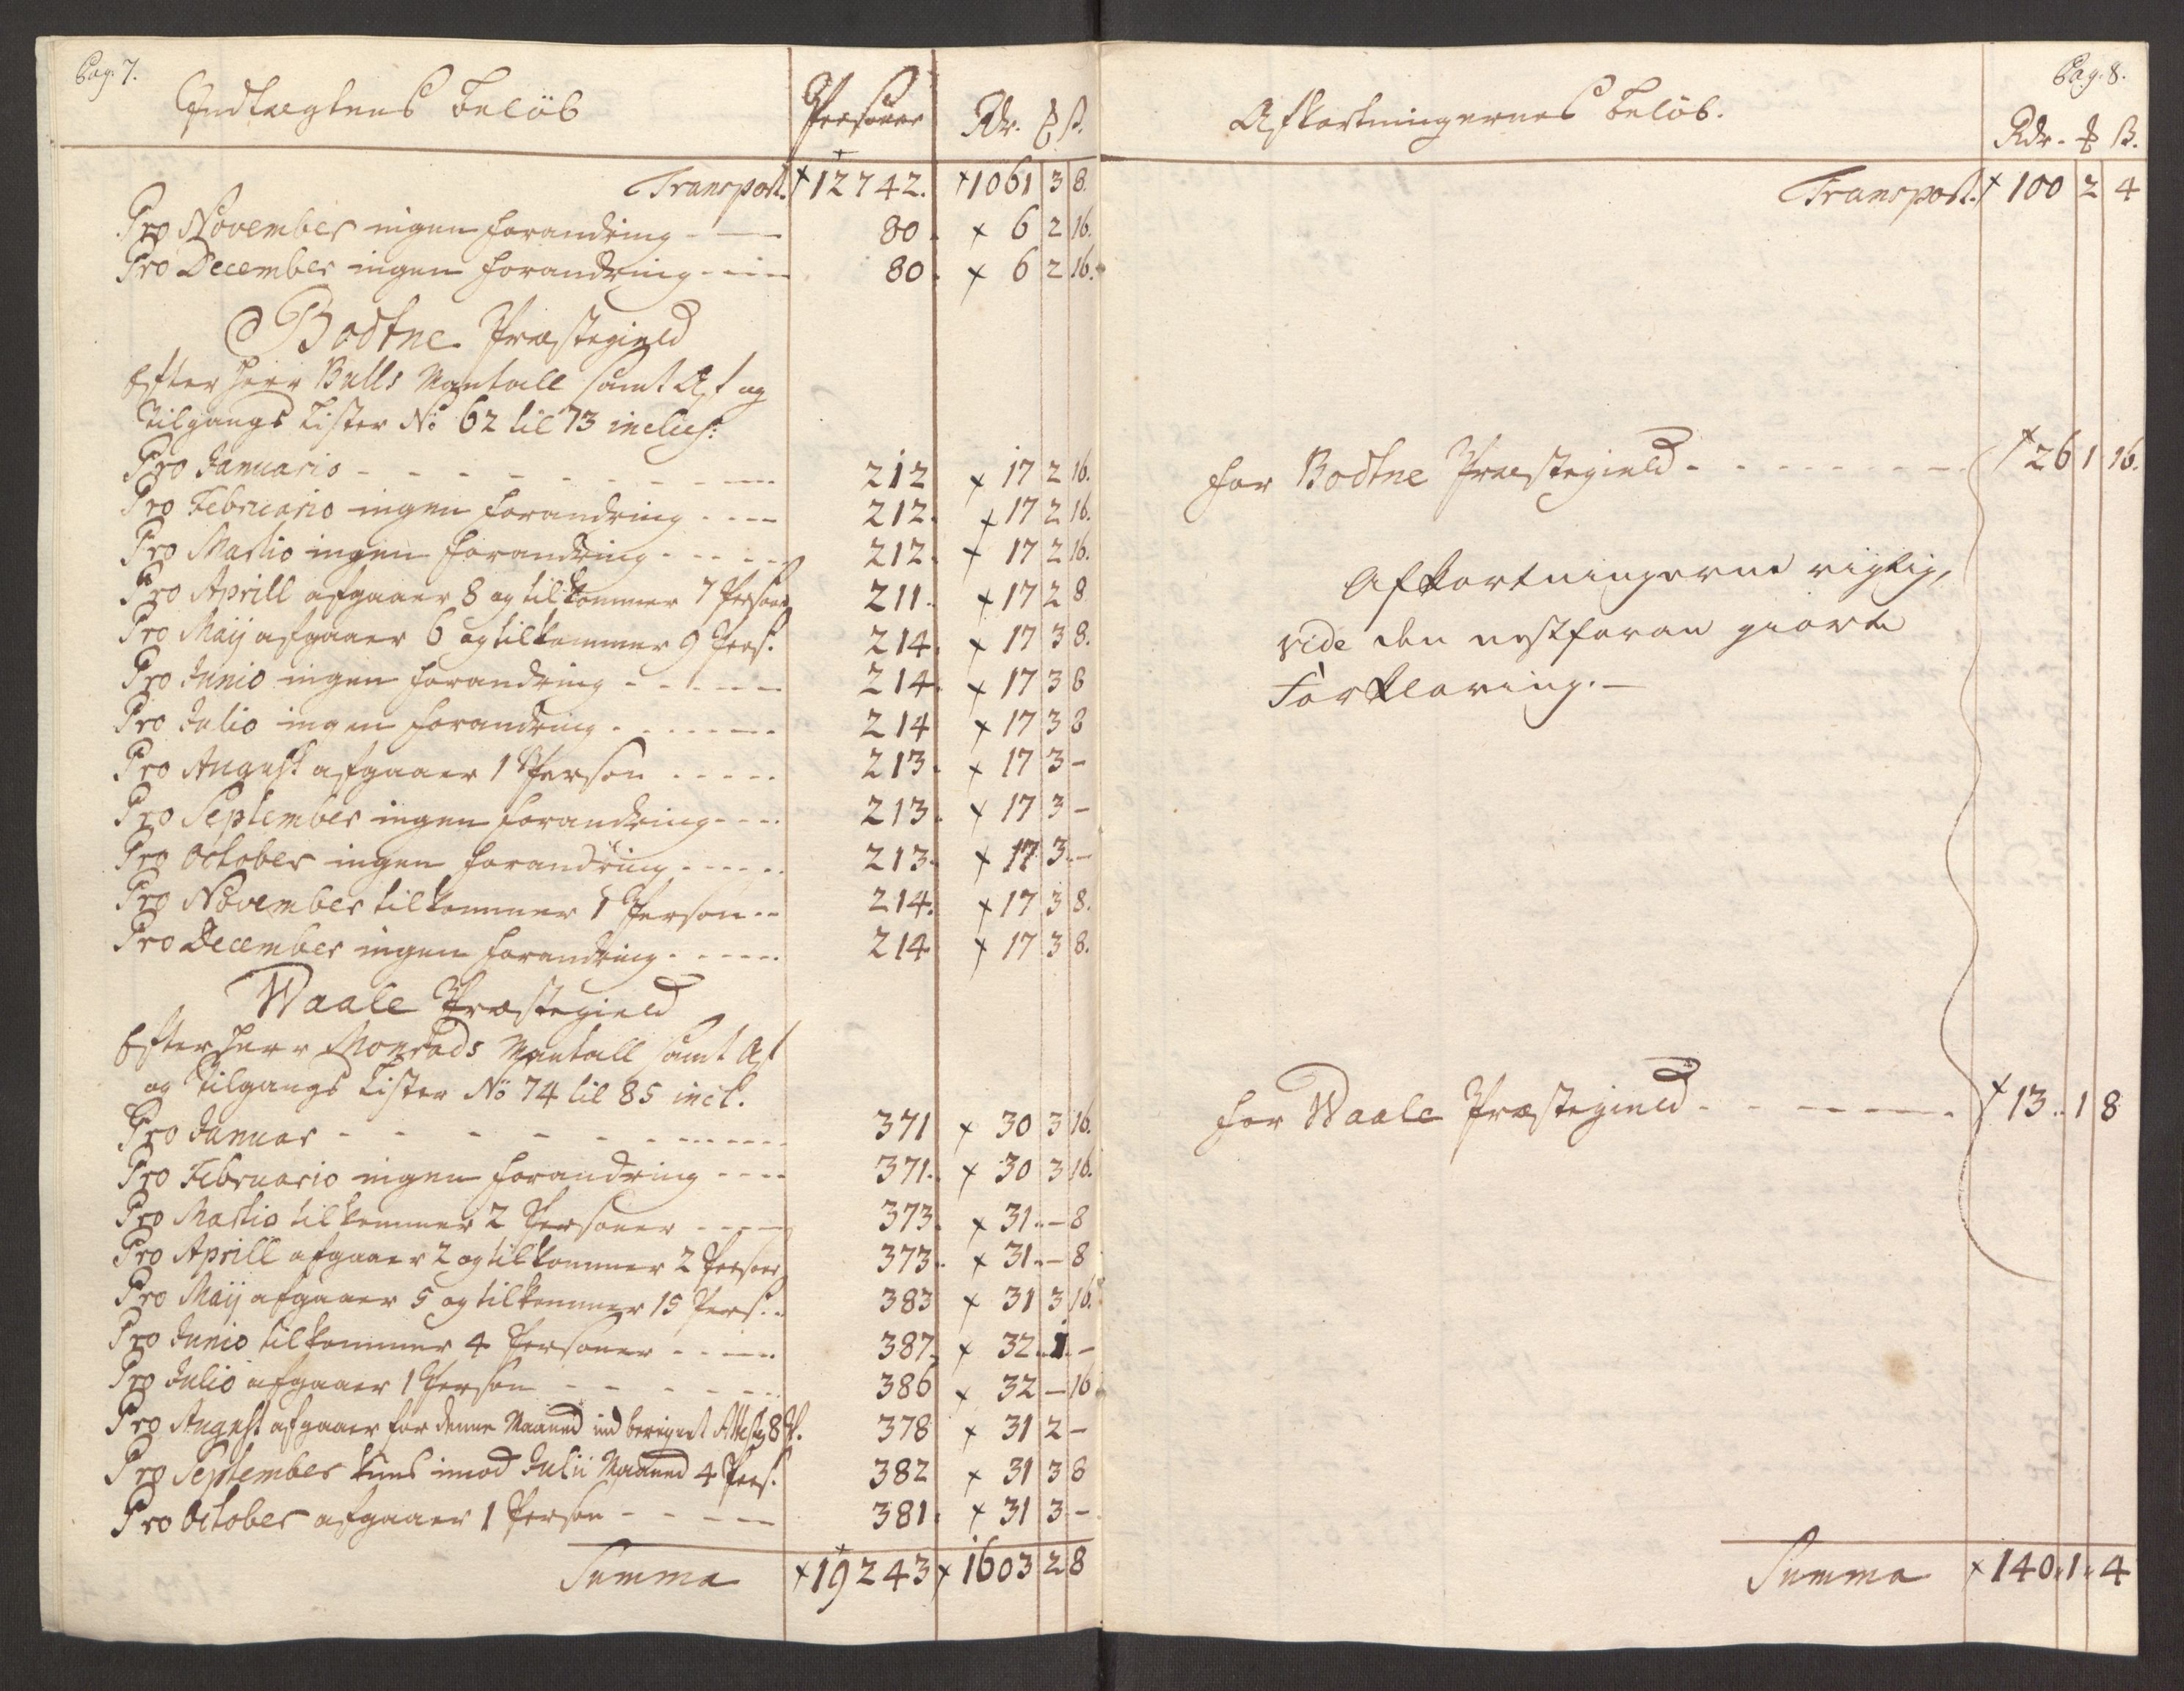 Pag. 7.
Indtægtens Beløb Personer Rdr. ℔ ß.
Transport 12742. 1061 3 8.
Pro November ingen forandring 80. 6 2 16.
Pro December ingen forandring 80. 6 2 16.
Bodtne Præstegield
Efter Herr Bulls Mantall samt Af og
tilgangs Lister No 62 til 73 inclus:
Pro Januario 212 17 2 16.
Pro Februario ingen forandring 212. 17 2 16.
Pro Martio ingen forandring 212. 17 2 16.
Pro Aprill afgaaer 8 og tilkommer 7 Personer 211. 17 2 8
Pro Maij afgaaer 6 og tilkommer 9 Pers. 214. 17 3 8.
Pro Junio ingen forandring 214. 17 3 8
Pro Julio ingen forandring 214 17 3 8
Pro August afgaaer 1 Person 213. 17 3 -
Pro September ingen forandring 213. 17 3 -
Pro October ingen forandring 213. 17 3 -
Pro November tilkommer 1 Person 214. 17 3 8.
Pro December ingen forandring 214 17 3 8.
Waale Præstegield
Efter Herr Monrads Mantall samt Af
og tilgangs Lister No 74 til 85 incl.
Pro Januar 371 30 3 16.
Pro Februario ingen forandring 371. 30 3 16.
Pro Martio tilkommer 2 Personer 373. 31 - 8
Pro Aprill afgaaer 2 og tilkommer 2 Personer 373. 31 - 8
Pro Maij afgaaer 5 og tilkommer 15 Pers. 383 31 3 16.
Pro Junio tilkommer 4 Personer 387. 32 1 -
Pro Julio afgaaer 1 Person 386 32 - 16
Pro August afgaaer for denne Maaned ind beregnet 8 P. 378 31 2 -
Pro September imod Julii Maaned 4 Pers. 382 31 3 8
Pro October afgaaer 1 Person 381. 31 3 -
Summa 19243 1603 2 8
Pag. 8.
Afkortningernes Beløb. Rdr. ℔ ß.
Transport. 100 2 4
for Bodtne Præstegield 26 1 16.
Afkortningerne rigtig,
vide den nestforan giorte
Forklaring.-
for Waale Præstegield 13 1 8
Summa 140 1 4